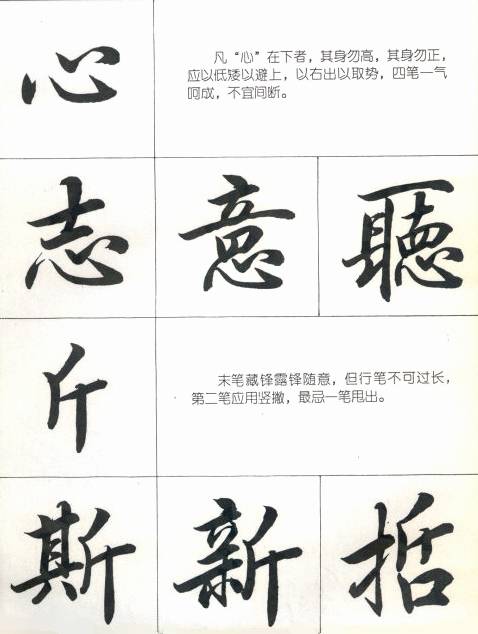 心
凡“心”在下者，其身勿高，其身勿正，
应以低矮以避上，以右出以取势，四笔一气
呵成，不宜间断。
志 意 聽
斤
末笔藏锋露锋随意，但行笔不可过长，
第二笔应用竖撇，最忌一笔甩出。
斯 新 哲